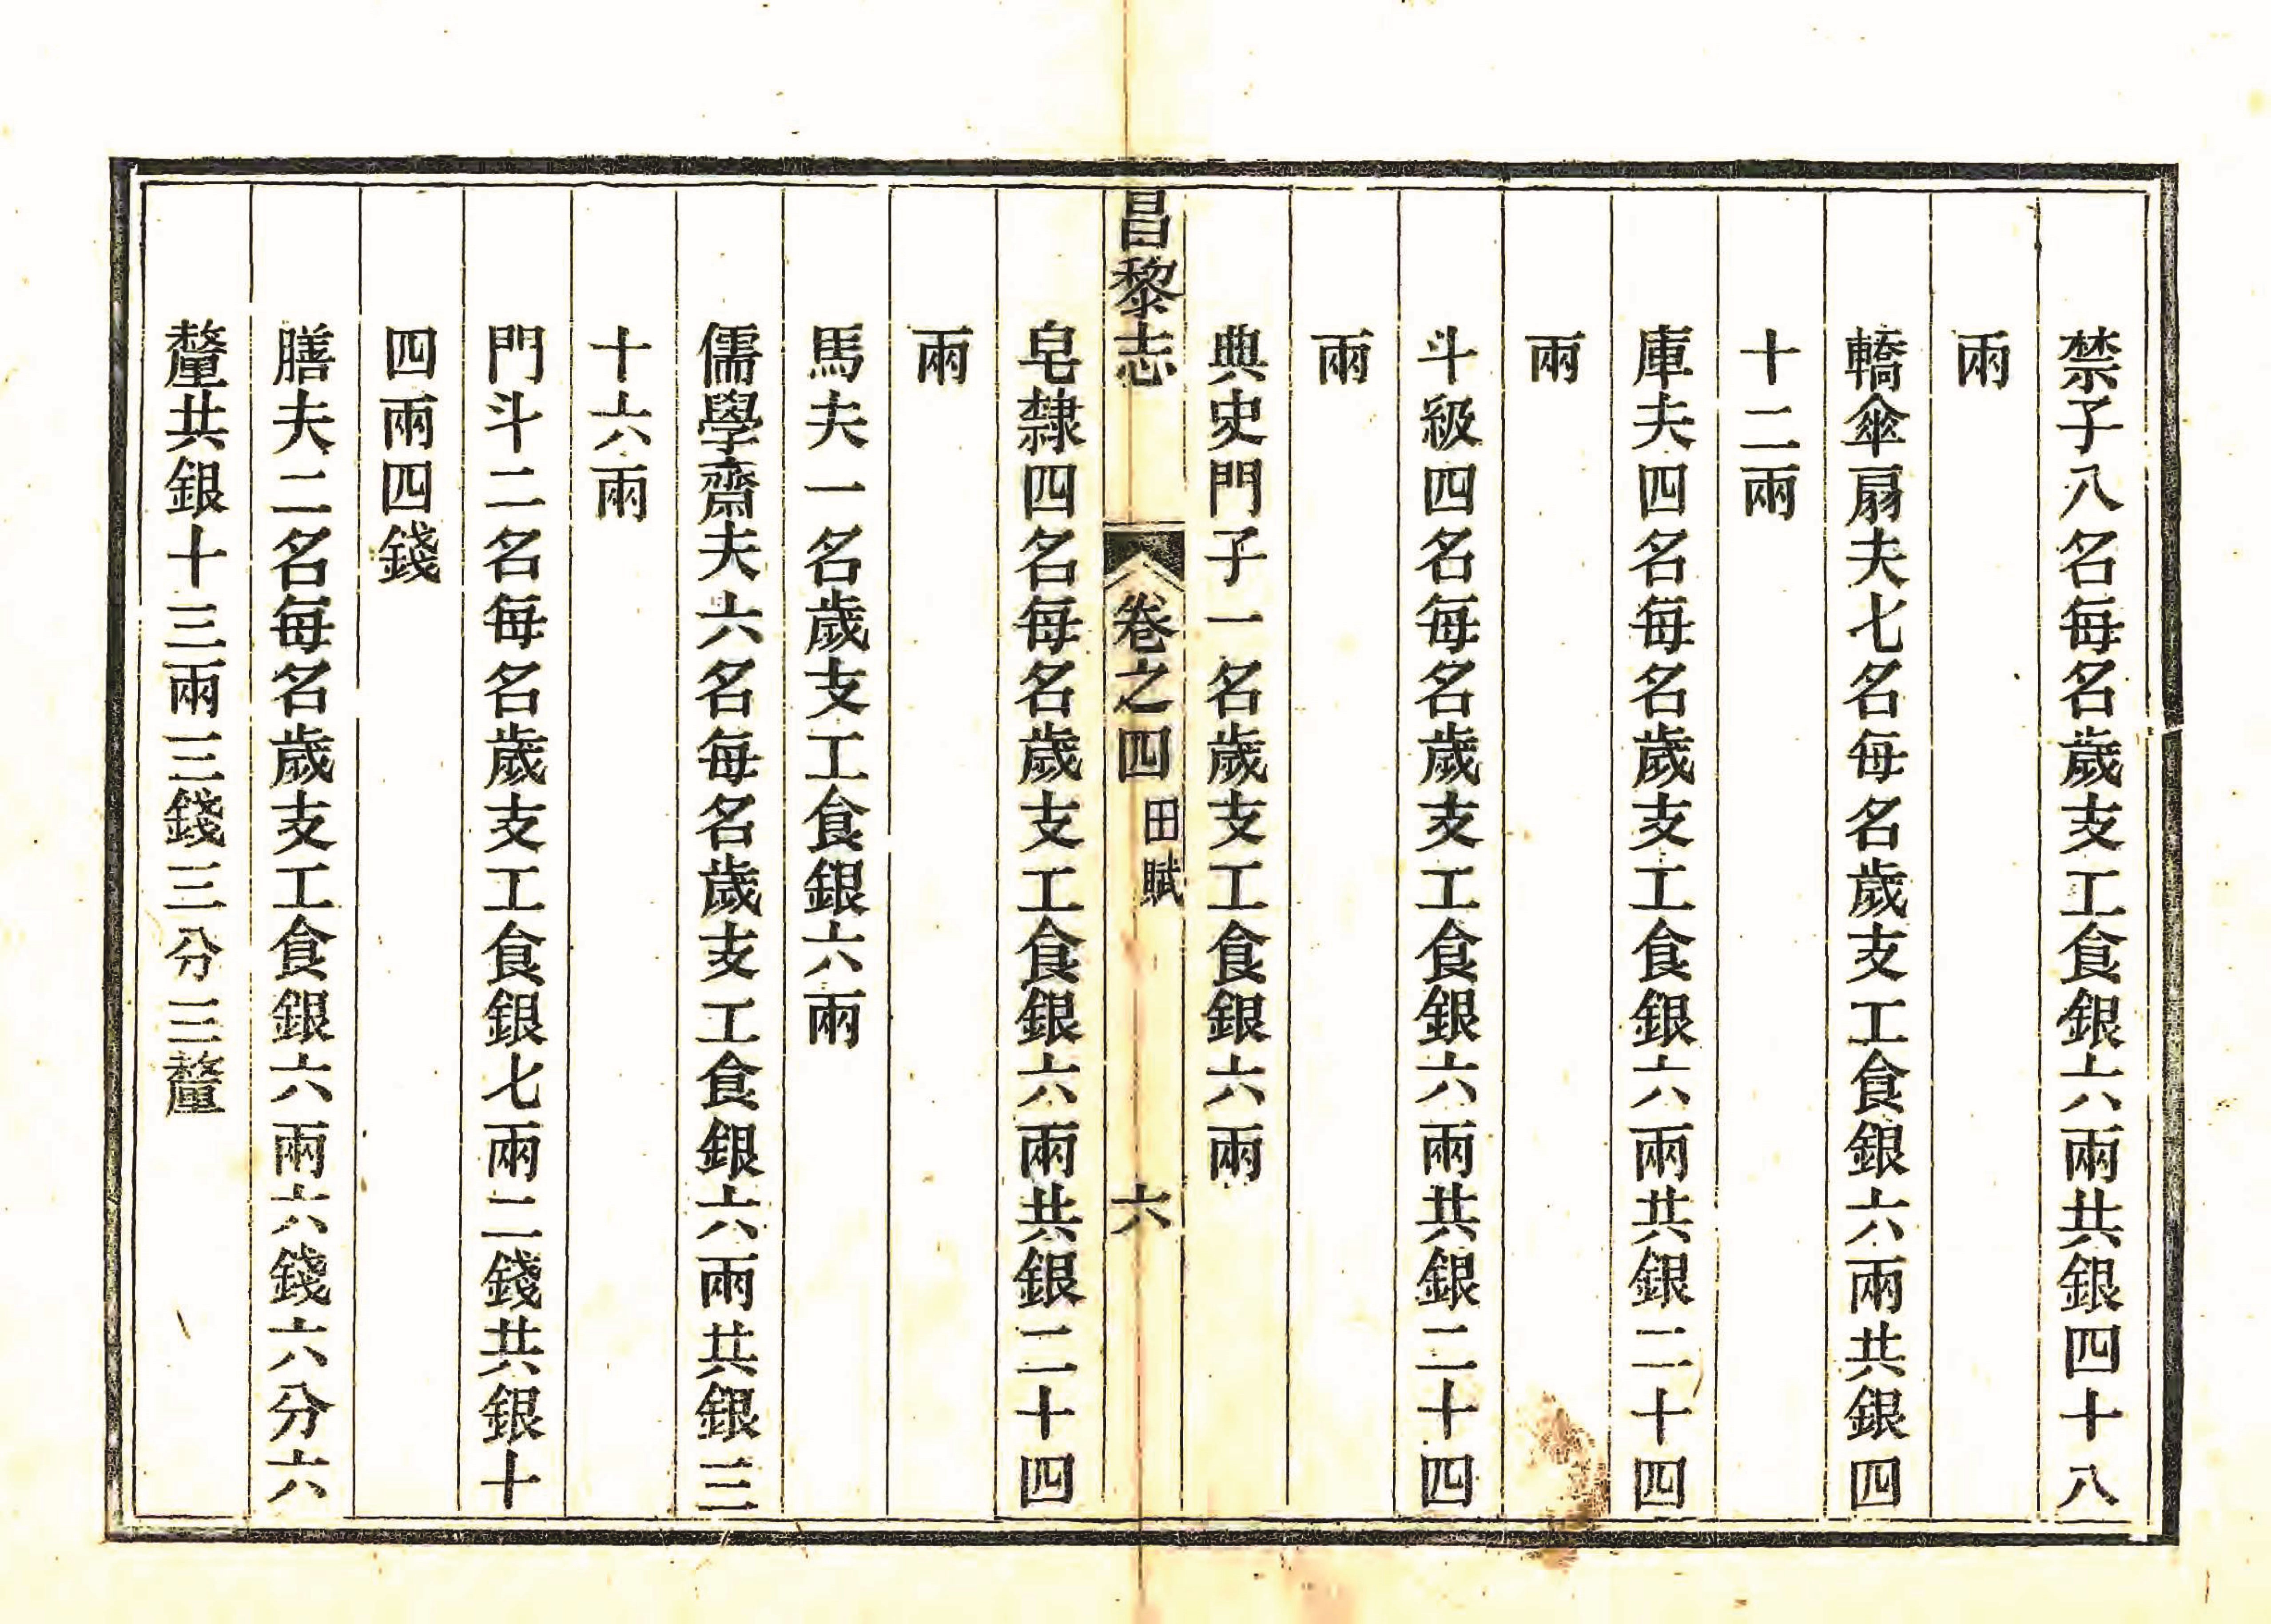 禁子八名每名歲支工食銀六兩共銀四十八
兩
轎傘扇夫七名每名歲支工食銀六兩共銀四
十二兩
庫夫四名每名歲支工食銀六兩共銀二十四
兩
斗級四名每名歲支工食銀六兩共銀二十四
兩
典史門子一名歲支工食銀六兩
昌黎志 卷之四 田賦 六
皂隸四名每名歲支工食銀六兩共銀二十四
兩
馬夫一名歲支工食銀六兩
儒學齋夫六名每名歲支工食銀六兩共銀三
十六兩
門斗二名每名歲支工食銀七兩二錢共銀十
四兩四錢
膳夫二名每名歲支工食銀六兩六錢六分六
釐共銀十三兩三錢三分三釐